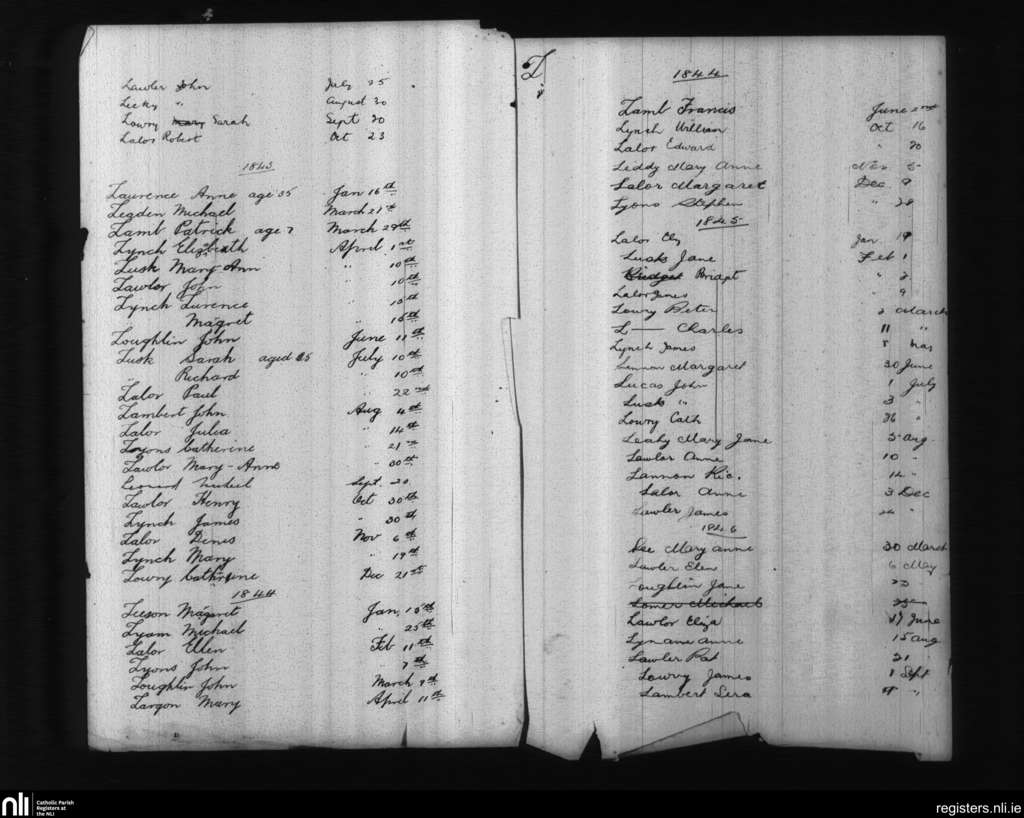 Lawler John July 25
Lecky " August 30
Lowry Mary Sarah Sept 20
Lalor Robert Oct 23
1843
Laurence Anne age 35 Jan 16th
Legden Michael March 21st
Lamb Patrick age 7 March 29th
Lynch Elizabeath April 1st
Lusk Mary Ann " 10th
Lawlor John 10th
Lynch Lurence 15th
Magret " 15th
Loughlin John June 11th
Lusk Sarah aged 65 July 10th
" Richard 10th
Lalor Paul " 22nd
Lambert John Aug 4th
Lalor Julia " 14th
Lyons Catherine " 21st
Lawlor Mary-Anne " 30th
Leonard Sept. 20
Lawlor Henry Oct 30th
Lynch James " 30th
Lalor Denes Nov 6th
Lynch Mary " 19th
Lowry Cathrine Dec 21st
1844
Leeson Magaret Jan, 15th
Lyam Michael " 25th
Lalor Ellen Feb 11th
Lyons John " 7th
Loughlin John March 9th
Largon Mary April 11th
L
1844
Lamb Francis June 2nd
Lynch William Oct 16
Lalor Edward " 20
Leddy Mary Anne Nov 5
Lalor Margaret Dec 9
Lyons Stephen " 28
1845
Lalor Ely Jan 19
Lusk Jane Feb 1
Bridget Bridgt " 2
Lalor James " 9
Lowry Peter 2 March
L—— Charles 11 "
Lynch James 8 May
Lennon Margaret 30 June
Lucas John 1 July
Lusk " 3 "
Lowry Cath 26 "
Leahy Mary Jane 5 Aug
Lawlor Anne 10 "
Lannon Ric. 14 "
Lalor Anne 3 Dec
Lawler James 24 "
1846
Lee Mary Anne 30 March
Lawler Elen 6 May
Loughlin Jane 23
Lomer Michael
Lawlor Eliza 17 June
Lynane Anne 15 Aug
Lawler Pat 21 "
Lowry James 1 Sept
Lambert Sera 4 "
nli Catholic Parish
Registers at
the NLI
registers.nli.ie